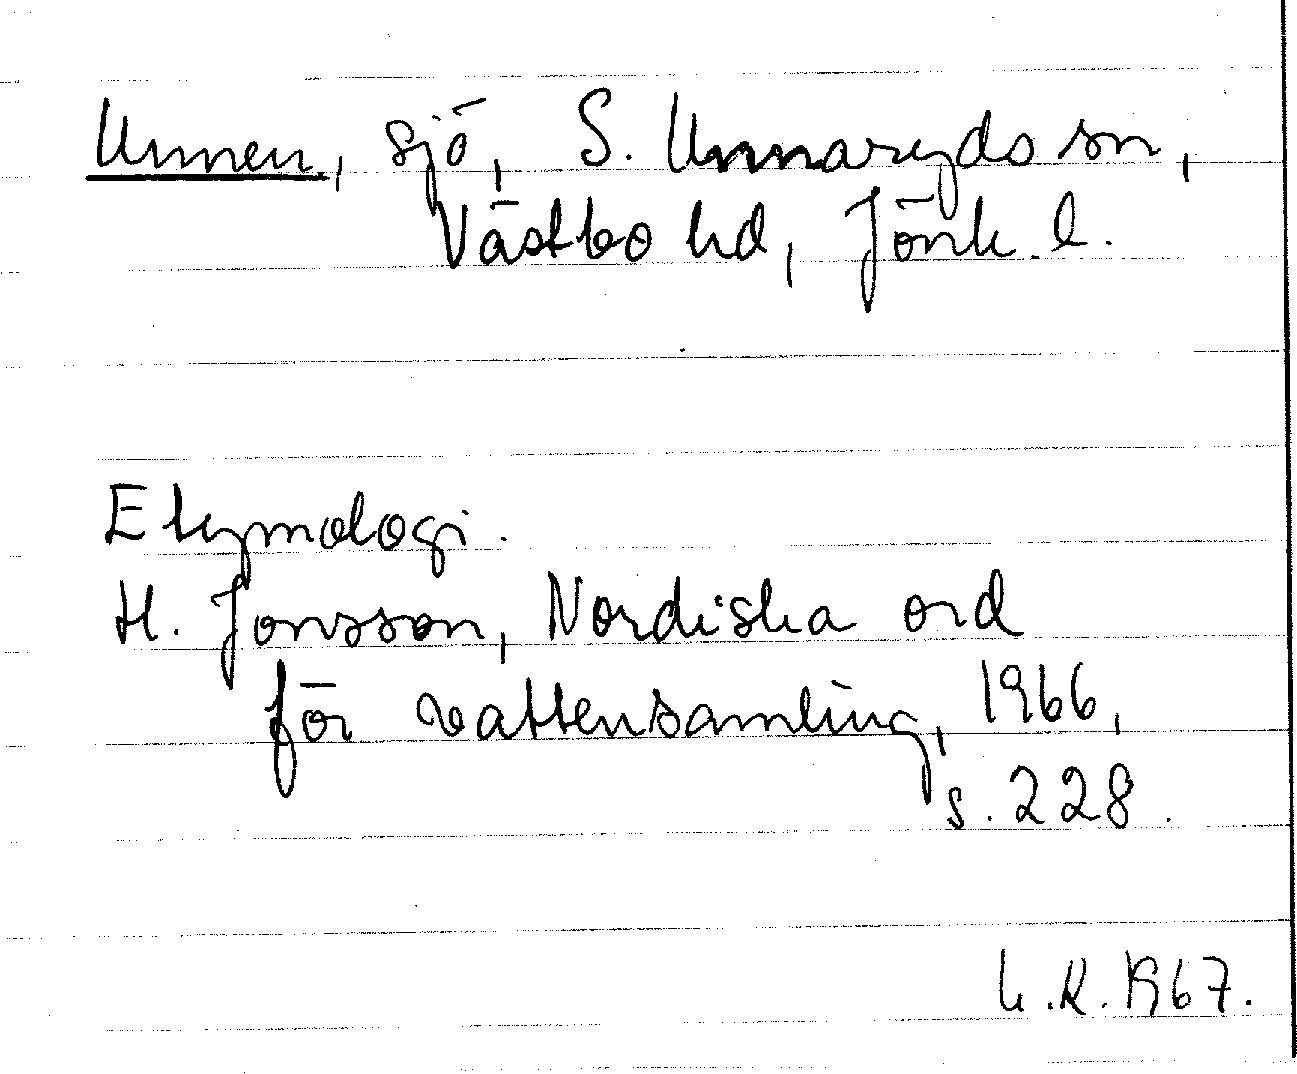 Unnen, sjö, S. Unnaryds sn,
Västbo hd, Jönk. l.
Etymologi.
H. Jonsson, Nordiska ord
för vattensamling, 1966,
s. 228.
L.R. 1967.